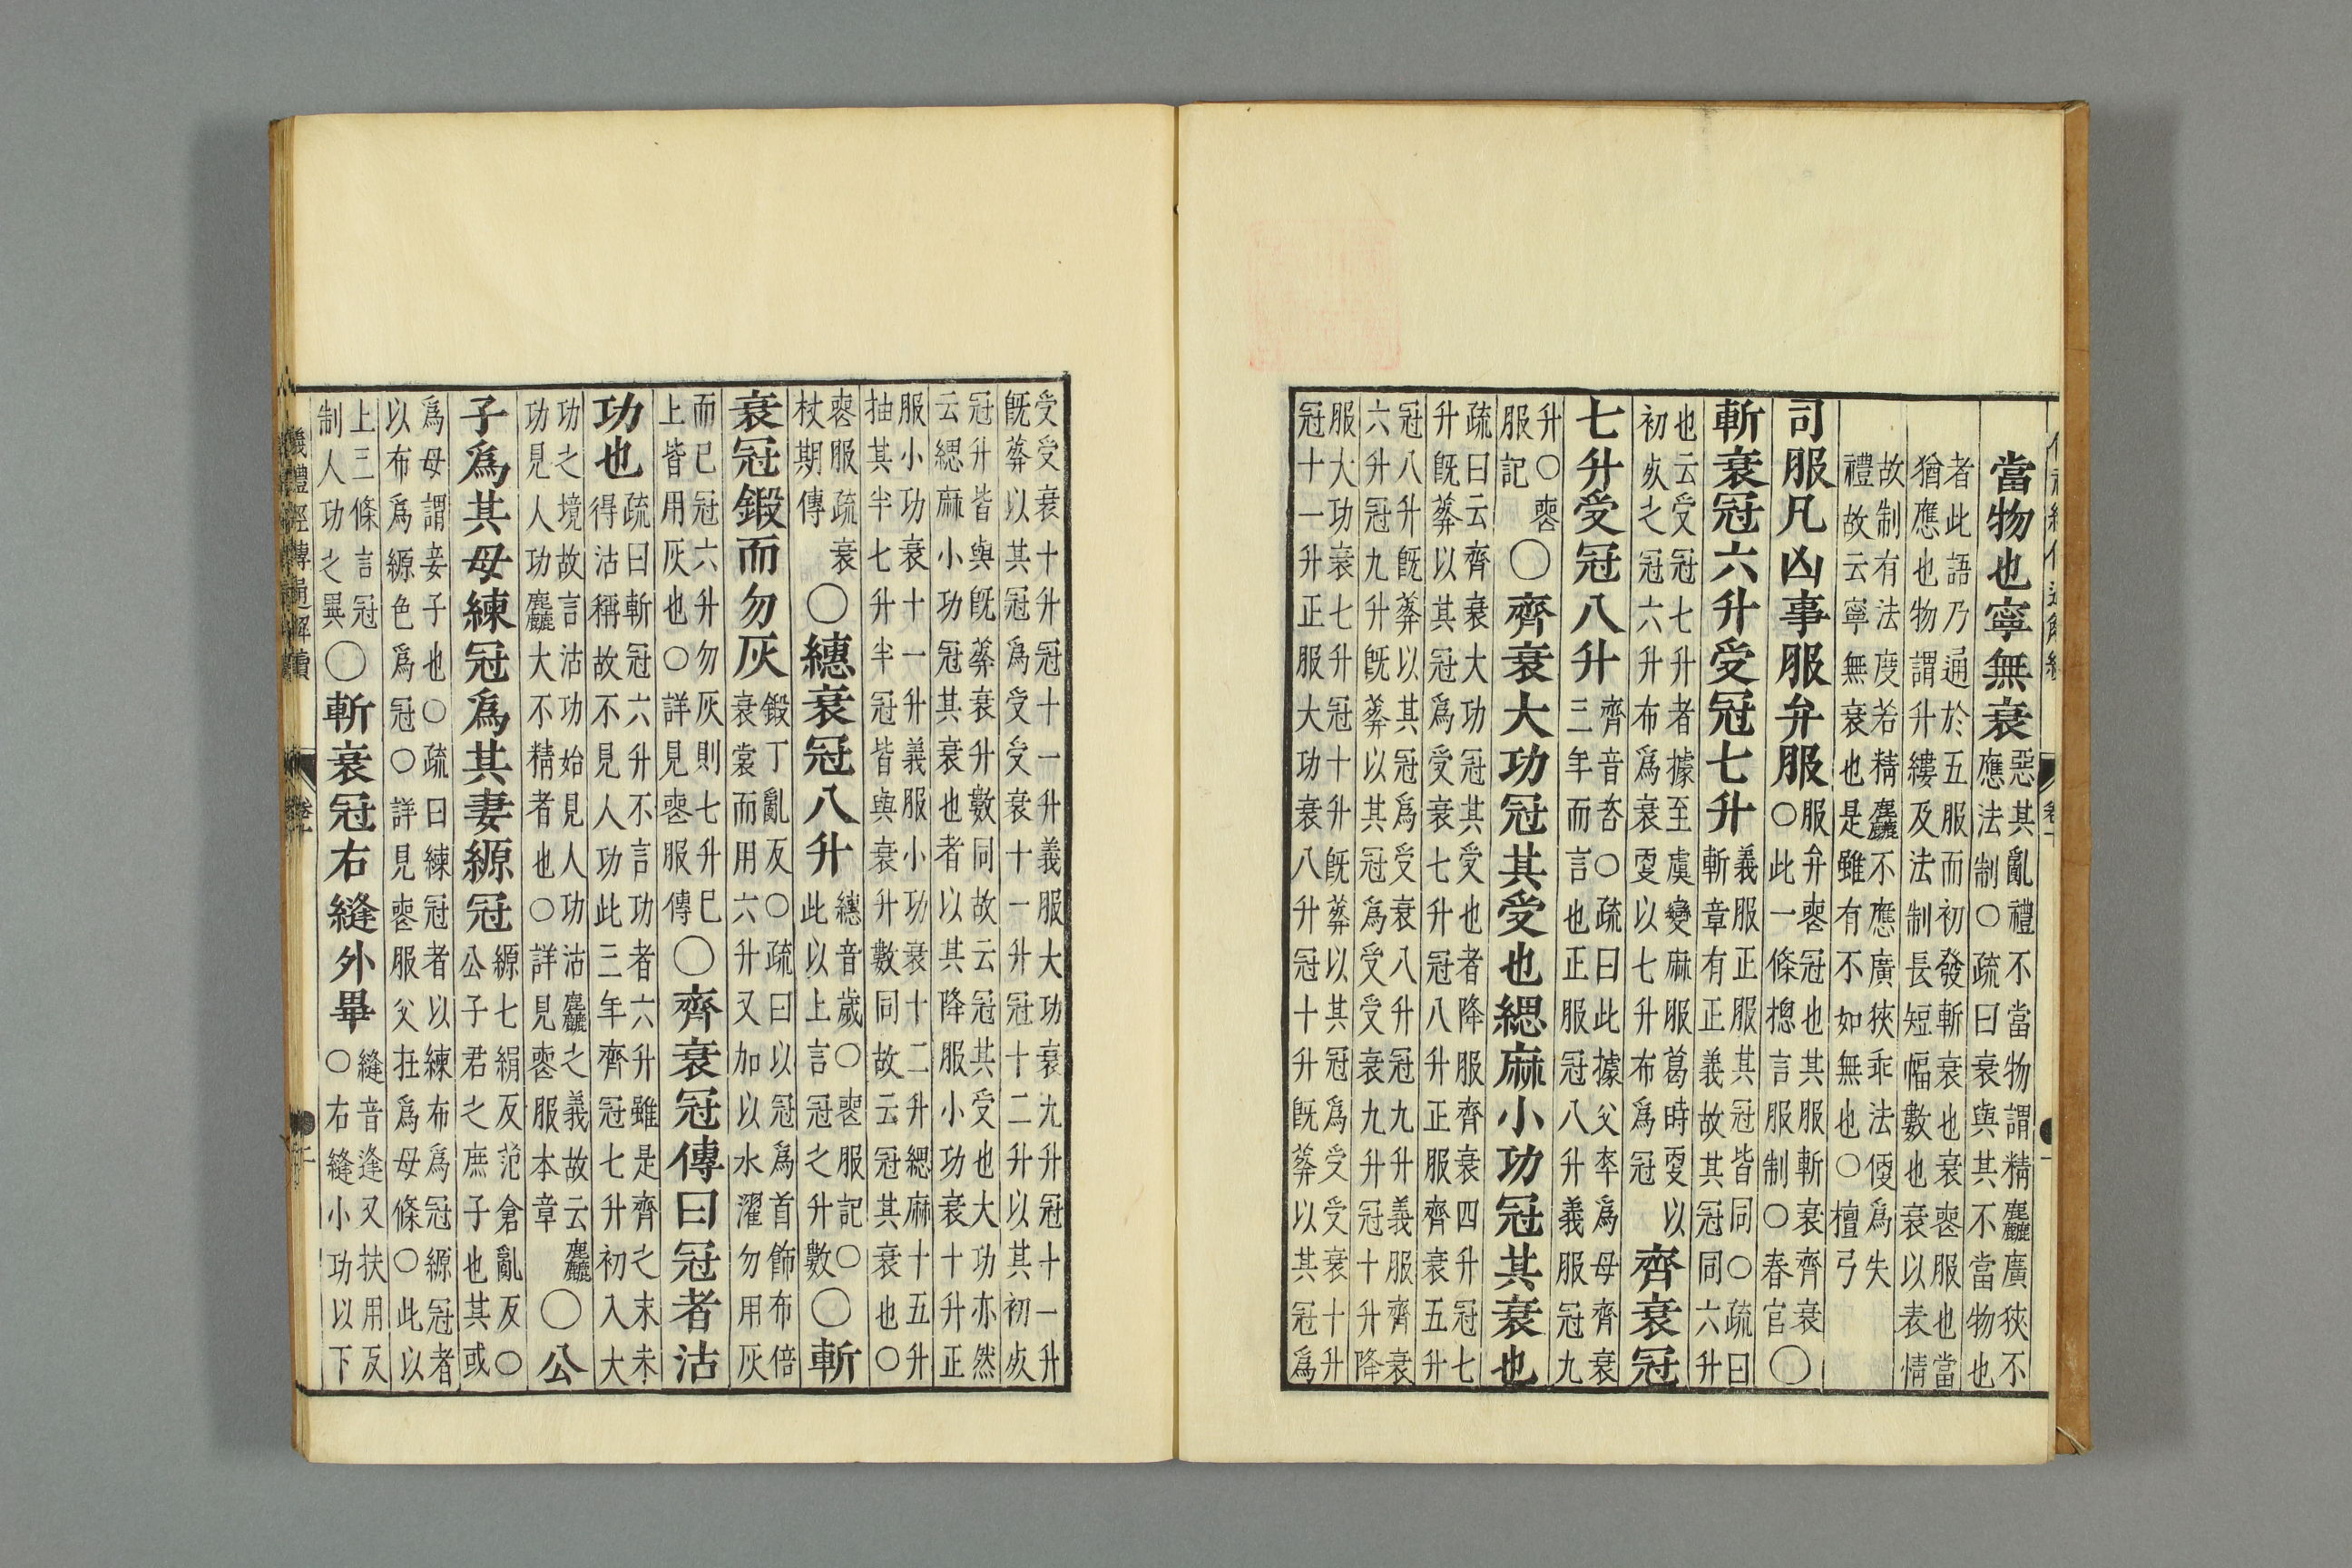 當物也寧無衰惡其亂禮不當物謂精麤廣狹不
應法制〇疏曰衰與其不當物也
者此語乃通於五服而初發斬衰也衰喪服也當
猶應也物謂升縷及法制長短幅數也衰以表情
故制有法度若精麤不應廣狹乖法便爲失
禮故云寧無衰也是雖有不如無也〇檀弓
司服凡凶事服弁服服弁喪冠也其服斬衰齊衰
〇此一條揔言服制〇春官〇
斬衰冠六升受冠七升義服正服其冠皆同〇疏曰
斬章有正義故其冠同六升
也云受冠七升者據至虞變麻服葛時更以
初死之冠六升布爲衰更以七升布爲冠
齊衰冠
七升受冠八升齊音咨〇疏曰此據父卒爲母齊衰
三年而言也正服冠八升義服冠九
升〇喪
服記
〇齊衰大功冠其受也緦麻小功冠其衰也
疏曰云齊衰大功冠其受也者降服齊衰四升冠七
升旣葬以其冠爲受衰七升冠八升正服齊衰五升
冠八升旣葬以其冠爲受衰八升冠九升義服齊衰
六升冠九升旣葬以其冠爲受受衰九升冠十升降
服大功衰七升冠十升旣葬以其冠爲受受衰十升
冠十一升正服大功衰八升冠十升旣葬以其冠爲
受受衰十升冠十一升義服大功衰九升冠十一升
旣葬以其冠爲受受衰十一升冠十二升以其初死
冠升皆與旣葬衰升數同故云冠其受也大功亦然
云緦麻小功冠其衰也者以其降服小功衰十升正
服小功衰十一升義服小功衰十二升緦麻十五升
抽其半七升半冠皆與衰升數同故云冠其衰也〇
喪服疏衰
杖期傳
〇繐衰冠八升繐音歲〇喪服記〇
此以上言冠之升數
〇斬
衰冠鍛而勿灰鍛丁亂反〇疏曰以冠爲首飾布倍
衰裳而用六升又加以水濯勿用灰
而已冠六升勿灰則七升已
上皆用灰也〇詳見喪服傳
〇齊衰冠傳曰冠者沽
功也疏曰斬冠六升不言功者六升雖是齊之末未
得沽稱故不見人功此三年齊冠七升初入大
功之境故言沽功始見人功沽麤之義故云麤
功見人功麤大不精者也〇詳見喪服本章
〇公
子爲其母練冠爲其妻縓冠縓七絹反范倉亂反〇
公子君之庶子也其或
爲母謂妾子也〇疏曰練冠者以練布爲冠縓冠者
以布爲縓色爲冠〇詳見喪服父在爲母條〇此以
上三條言冠
制人功之異
〇斬衰冠右縫外畢縫音逢又扶用反
〇右縫小功以下
儀禮經傳通解續
卷十一